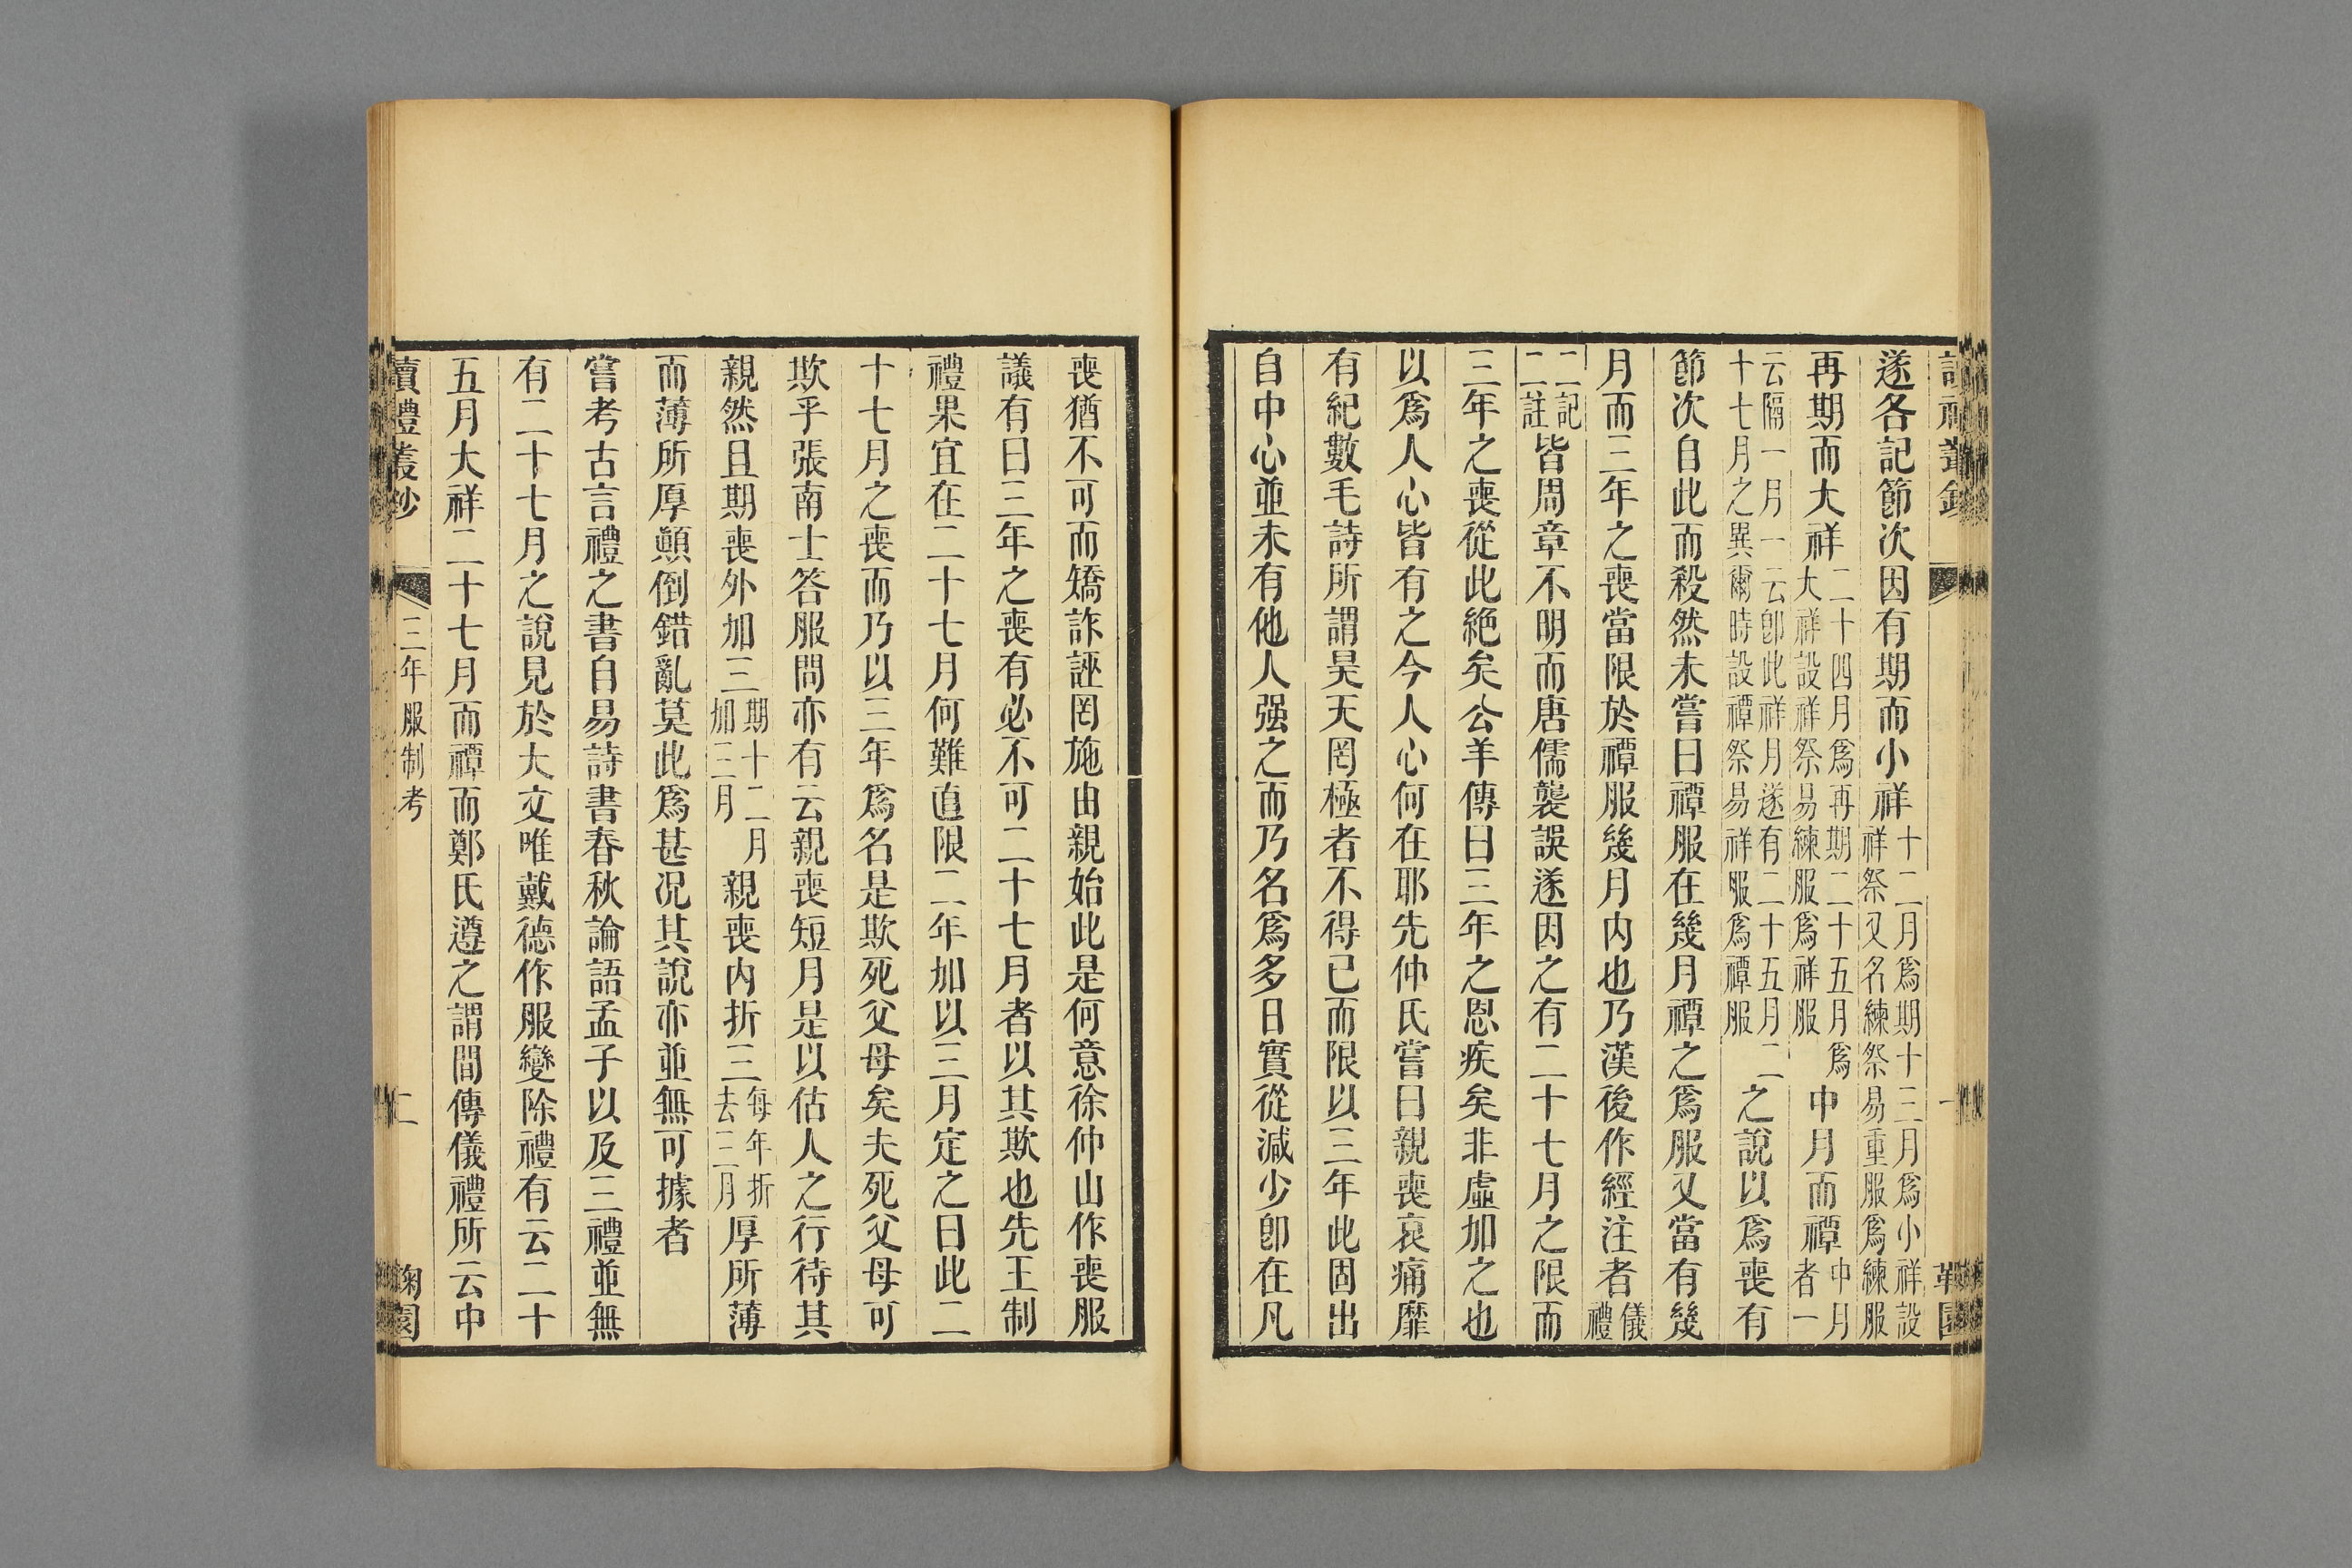 遂各記節次因有期而小祥十二月爲期十三月爲小祥設祥祭又名練祭易重服爲練服
再期而大祥二十四月爲再期二十五月爲大祥設祥祭易練服爲祥服中月而禫中月者一
云隔一月一云卽此祥月遂有二十五月二十七月之異爾時設禫祭易祥服爲禫服之說以爲喪有
節次自此而殺然未嘗曰禫服在幾月禫之爲服又當有幾
月而三年之喪當限於禫服幾月內也乃漢後作經注者儀禮
二記二註皆周章不明而唐儒襲誤遂因之有二十七月之限而
三年之喪從此絕矣公羊傳曰三年之恩疾矣非虛加之也
以爲人心皆有之今人心何在耶先仲氏嘗曰親喪哀痛靡
有紀數毛詩所謂昊天罔極者不得已而限以三年此固出
自中心並未有他人强之而乃名爲多日實從減少卽在凡
喪猶不可而矯詐誣罔施由親始此是何意徐仲山作喪服
議有曰三年之喪有必不可二十七月者以其欺也先王制
禮果宜在二十七月何難直限二年加以三月定之曰此二
十七月之喪而乃以三年爲名是欺死父母矣夫死父母可
欺乎張南士答服問亦有云親喪短月是以估人之行待其
親然且期喪外加三期十二月加三月親喪內折三每年折去三月厚所薄
而薄所厚顚倒錯亂莫此爲甚况其說亦並無可據者
嘗考古言禮之書自易詩書春秋論語孟子以及三禮並無
有二十七月之說見於大文唯戴德作服變除禮有云二十
五月大祥二十七月而禫而鄭氏遵之謂間傳儀禮所云中
讀禮叢鈔
三年服制考
二
鞠園